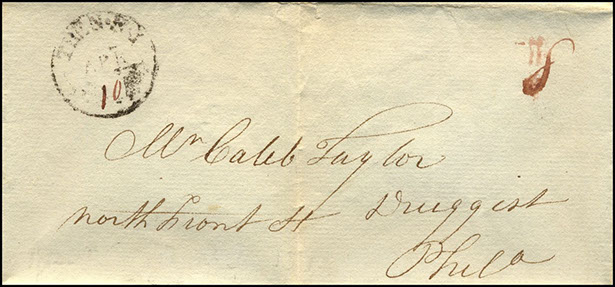 10
8
Mr Caleb Taylor
north Front St Druggist
Phila